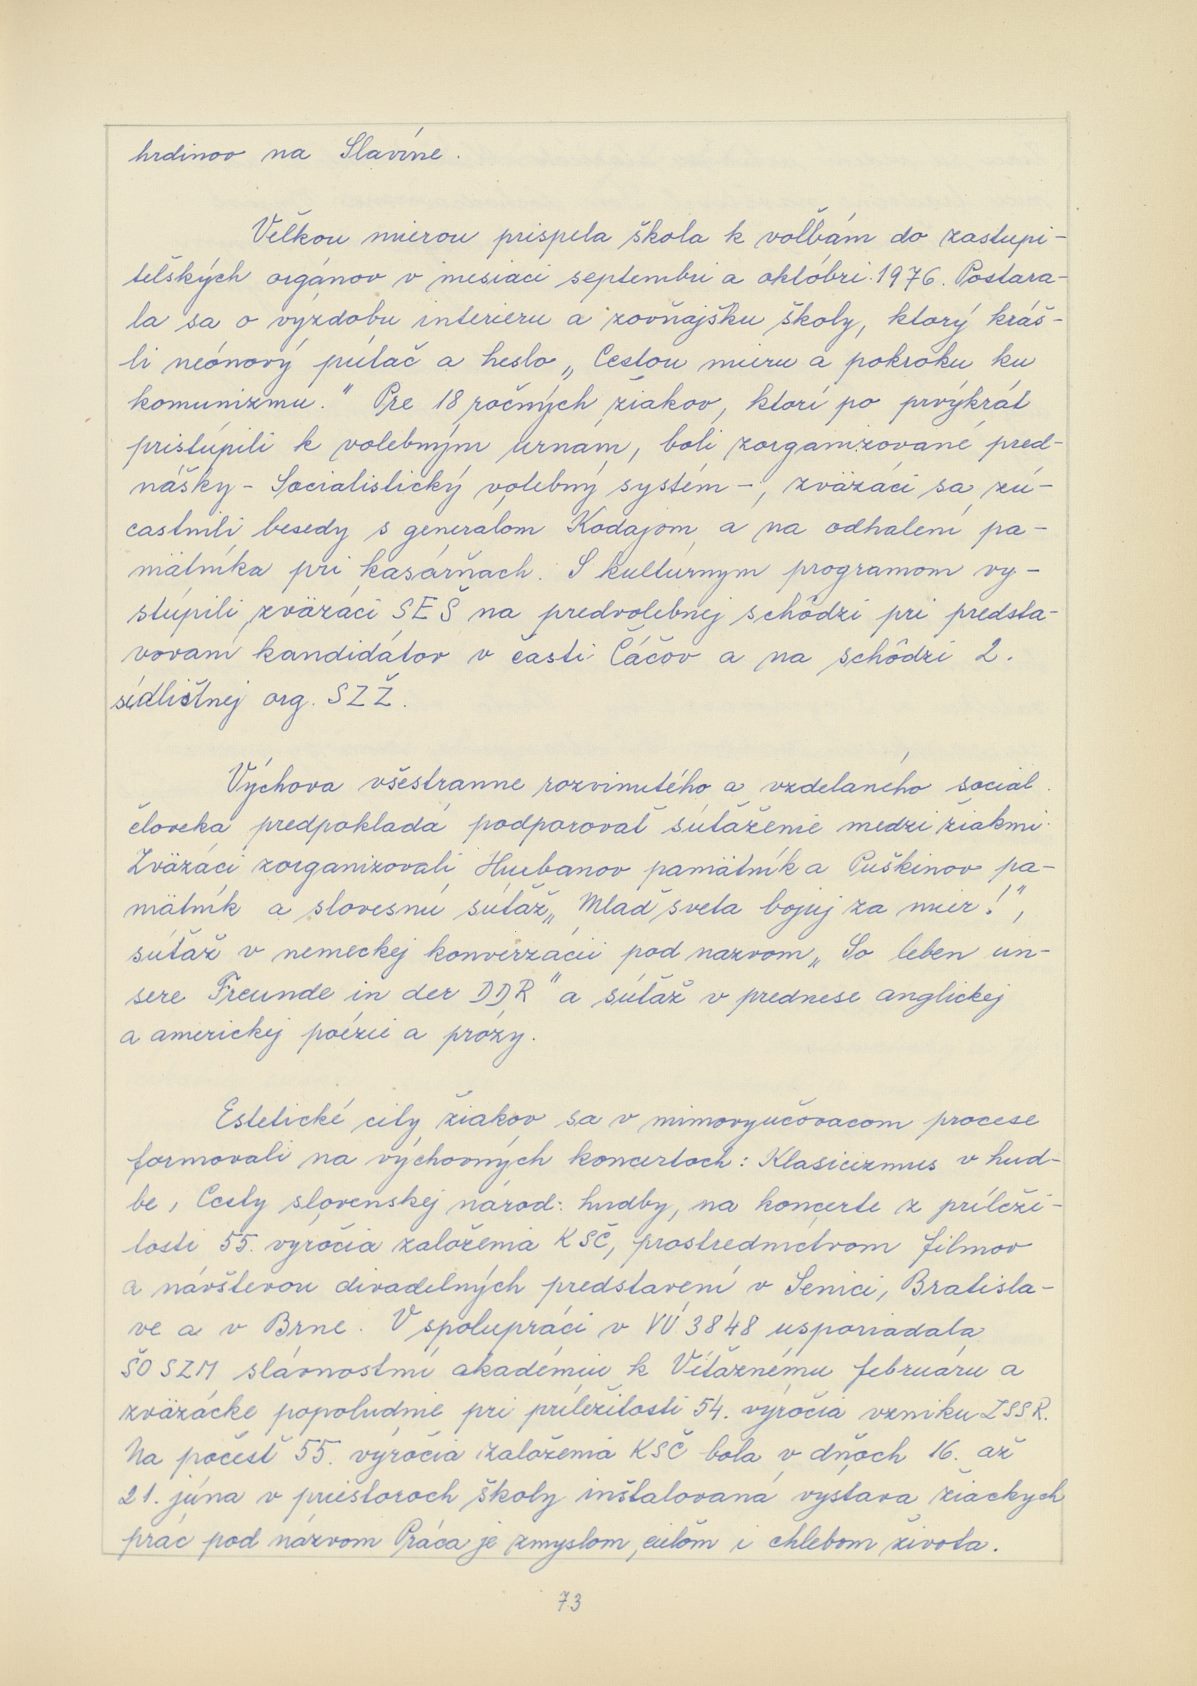 hrdinov na Slavíne.
Veľkou mierou prispela škola k voľbám do zastupi-
teľských orgánov v mesiaci septembri a októbri 1976. Postara-
la sa o výzdobu interieru a zovňajšku školy, ktorý kráš-
li neónový pútač a heslo „Cestou mieru a pokroku ku
komunizmu." Pre 18 ročných žiakov, ktorí po prvýkrát
pristúpili k volebným urnám, boli zorganizované pred-
nášky - Socialistický volebný systém -, zväzáci sa zú-
častnili besedy s generálom Kodajom a na odhalení pa-
mätníka pri kasárňach. S kultúrnym programom vy-
stúpili zväzáci SEŠ na predvolebnej schôdzi pri predsta-
vovaní kandidátov v časti Čáčov a na schôdzi 2.
sídlištnej org. SZŽ.
Výchova všestranne rozvinutého a vzdelaného social.
človeka predpokladá podporovať súťaženie medzi žiakmi.
Zväzáci zorganizovali Hurbanov pamätník a Puškinov pa-
mätník a slovesnú súťaž „Mlaď sveta bojuj za mier!",
súťaž v nemeckej konverzácii pod názvom „So leben un-
sere Freunde in der DDR" a súťaž v prednese anglickej
a americkej poézie a prózy.
Estetické city žiakov sa v mimovyučovacom procese
formovali na výchovných koncertoch: Klasicizmus v hud-
be, Cesty slovenskej národ. hudby, na koncerte z príleži-
tosti 55. výročia založenia KSČ, prostredníctvom filmov
a návštevou divadelných predstavení v Senici, Bratisla-
ve a v Brne. V spolupráci v VÚ 3848 usporiadala
ŠO SZM slávnostnú akadémiu k Víťaznému februáru a
zväzácke popoludnie pri príležitosti 54. výročia vzniku ZSSR.
Na počesť 55. výročia založenia KSČ bola v dňoch 16. až
21. júna v priestoroch školy inštalovaná výstava žiackych
prác pod názvom Práca je zmyslom, cieľom i chlebom života.
73